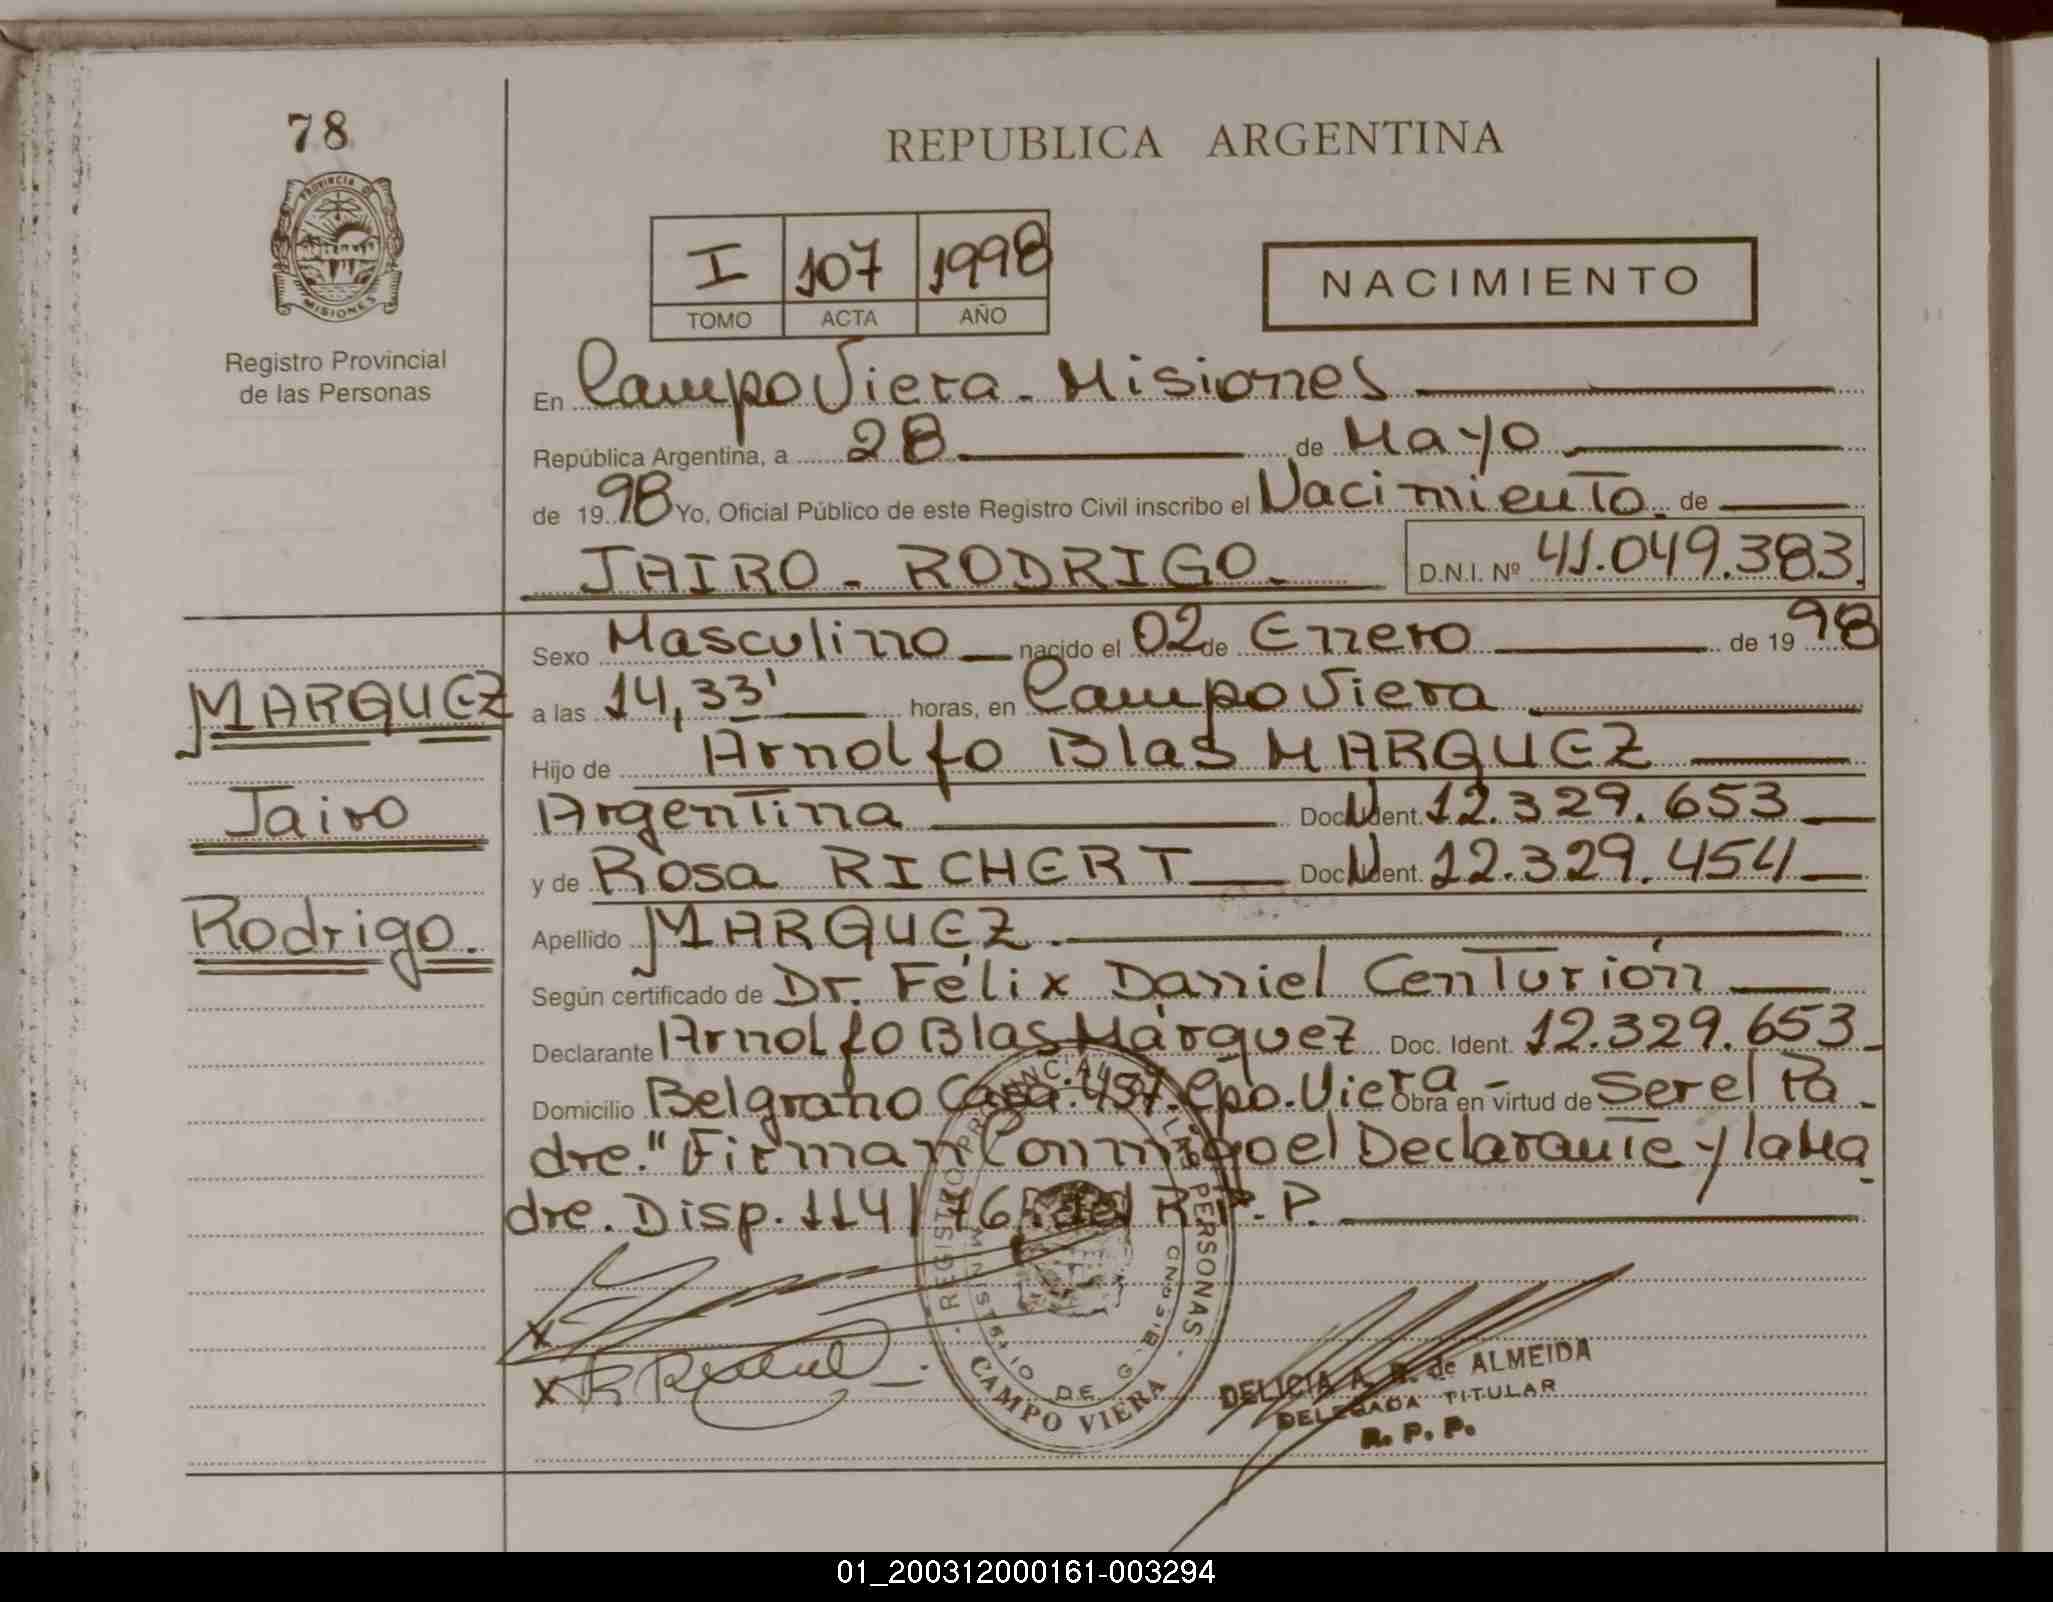 78
PROVINCIA DE
MISIONES
Registro Provincial
de las Personas
MARQUEZ
Jairo
Rodrigo.
REPUBLICA ARGENTINA
I 107 1998
TOMO ACTA AÑO
NACIMIENTO
En Campo Viera - Misiones
República Argentina, a 28 de Mayo
de 1998 Yo, Oficial Público de este Registro Civil inscribo el Nacimiento de
JAIRO - RODRIGO. D.N.I. Nº 41.049.383
Sexo Masculino nacido el 02 de Enero de 1998
a las 14,33' horas, en Campo Viera
Hijo de Arnolfo Blas MARQUEZ
Argentina Doc. Ident. 12.329.653
y de Rosa RICHERT Doc. Ident. 12.329.454
Apellido MARQUEZ.
Según certificado de Dr. Félix Daniel Centurión
Declarante Arnolfo Blas Márquez Doc. Ident. 12.329.653
Domicilio Belgrano Casa: 457. Cpo. Viera - Obra en virtud de Ser el Pa
dre." Firman Conmigo el Declarante y la Ma
dre. Disp. 114/76 del R.P.P.
REGISTRO PROVINCIAL DE LAS PERSONAS
MINISTERIO DE GOBIERNO
CAMPO VIERA
X
X R Richert
DELICIA A. de ALMEIDA
DELEGADA TITULAR
R. P. P.
01_200312000161-003294